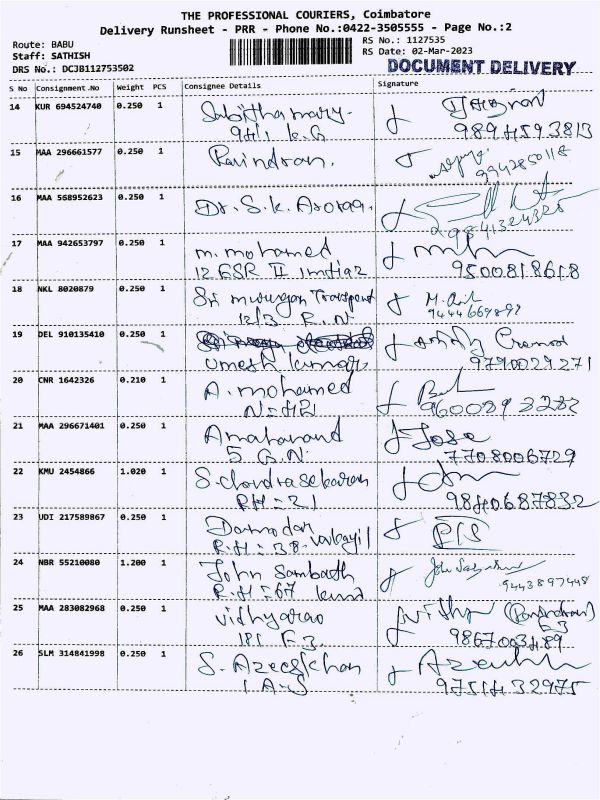 THE PROFESSIONAL COURIERS, Coimbatore
Delivery Runsheet - PRR - Phone No.:0422-3505555 - Page No.:2
Route: BABU
Staff: SATHISH
DRS No.: DCJB112753502
RS No.: 1127535
RS Date: 02-Mar-2023
DOCUMENT DELIVERY
S No Consignment.No Weight PCS Consignee Details Signature
14 KUR 694524740 0.250 1 Sabithamary.
K.G 9894593813
15 MAA 296661577 0.250 1 Ravindran.
9942850118
16 MAA 568952623 0.250 1 Dr. S.K. Arora.
9841324325
17 MAA 942653797 0.250 1 M. Mohamed
12 ESR II 9500818618
18 NKL 8020879 0.250 1 Sri Murugan Transport
12/3 R.N. 9444669892
19 DEL 910135410 0.250 1
Umesh Kumar 9790029271
20 CNR 1642326 0.210 1 A. Mohamed
9600892282
21 MAA 296671401 0.250 1 Amaranand Jose
5 G.N. 7708006729
22 KMU 2454866 1.020 1 S. Chandrasekaran
RH = 21 9840687832
23 UDI 217589867 0.250 1 Damodar
R.H = 38.
24 NBR 55210080 1.200 1 John Sambath
R.H = 67 9443897448
25 MAA 283082968 0.250 1 Vidhyarao
181 F3. 9867003489
26 SLM 314841998 0.250 1 S. Azeeskhan
9751432975